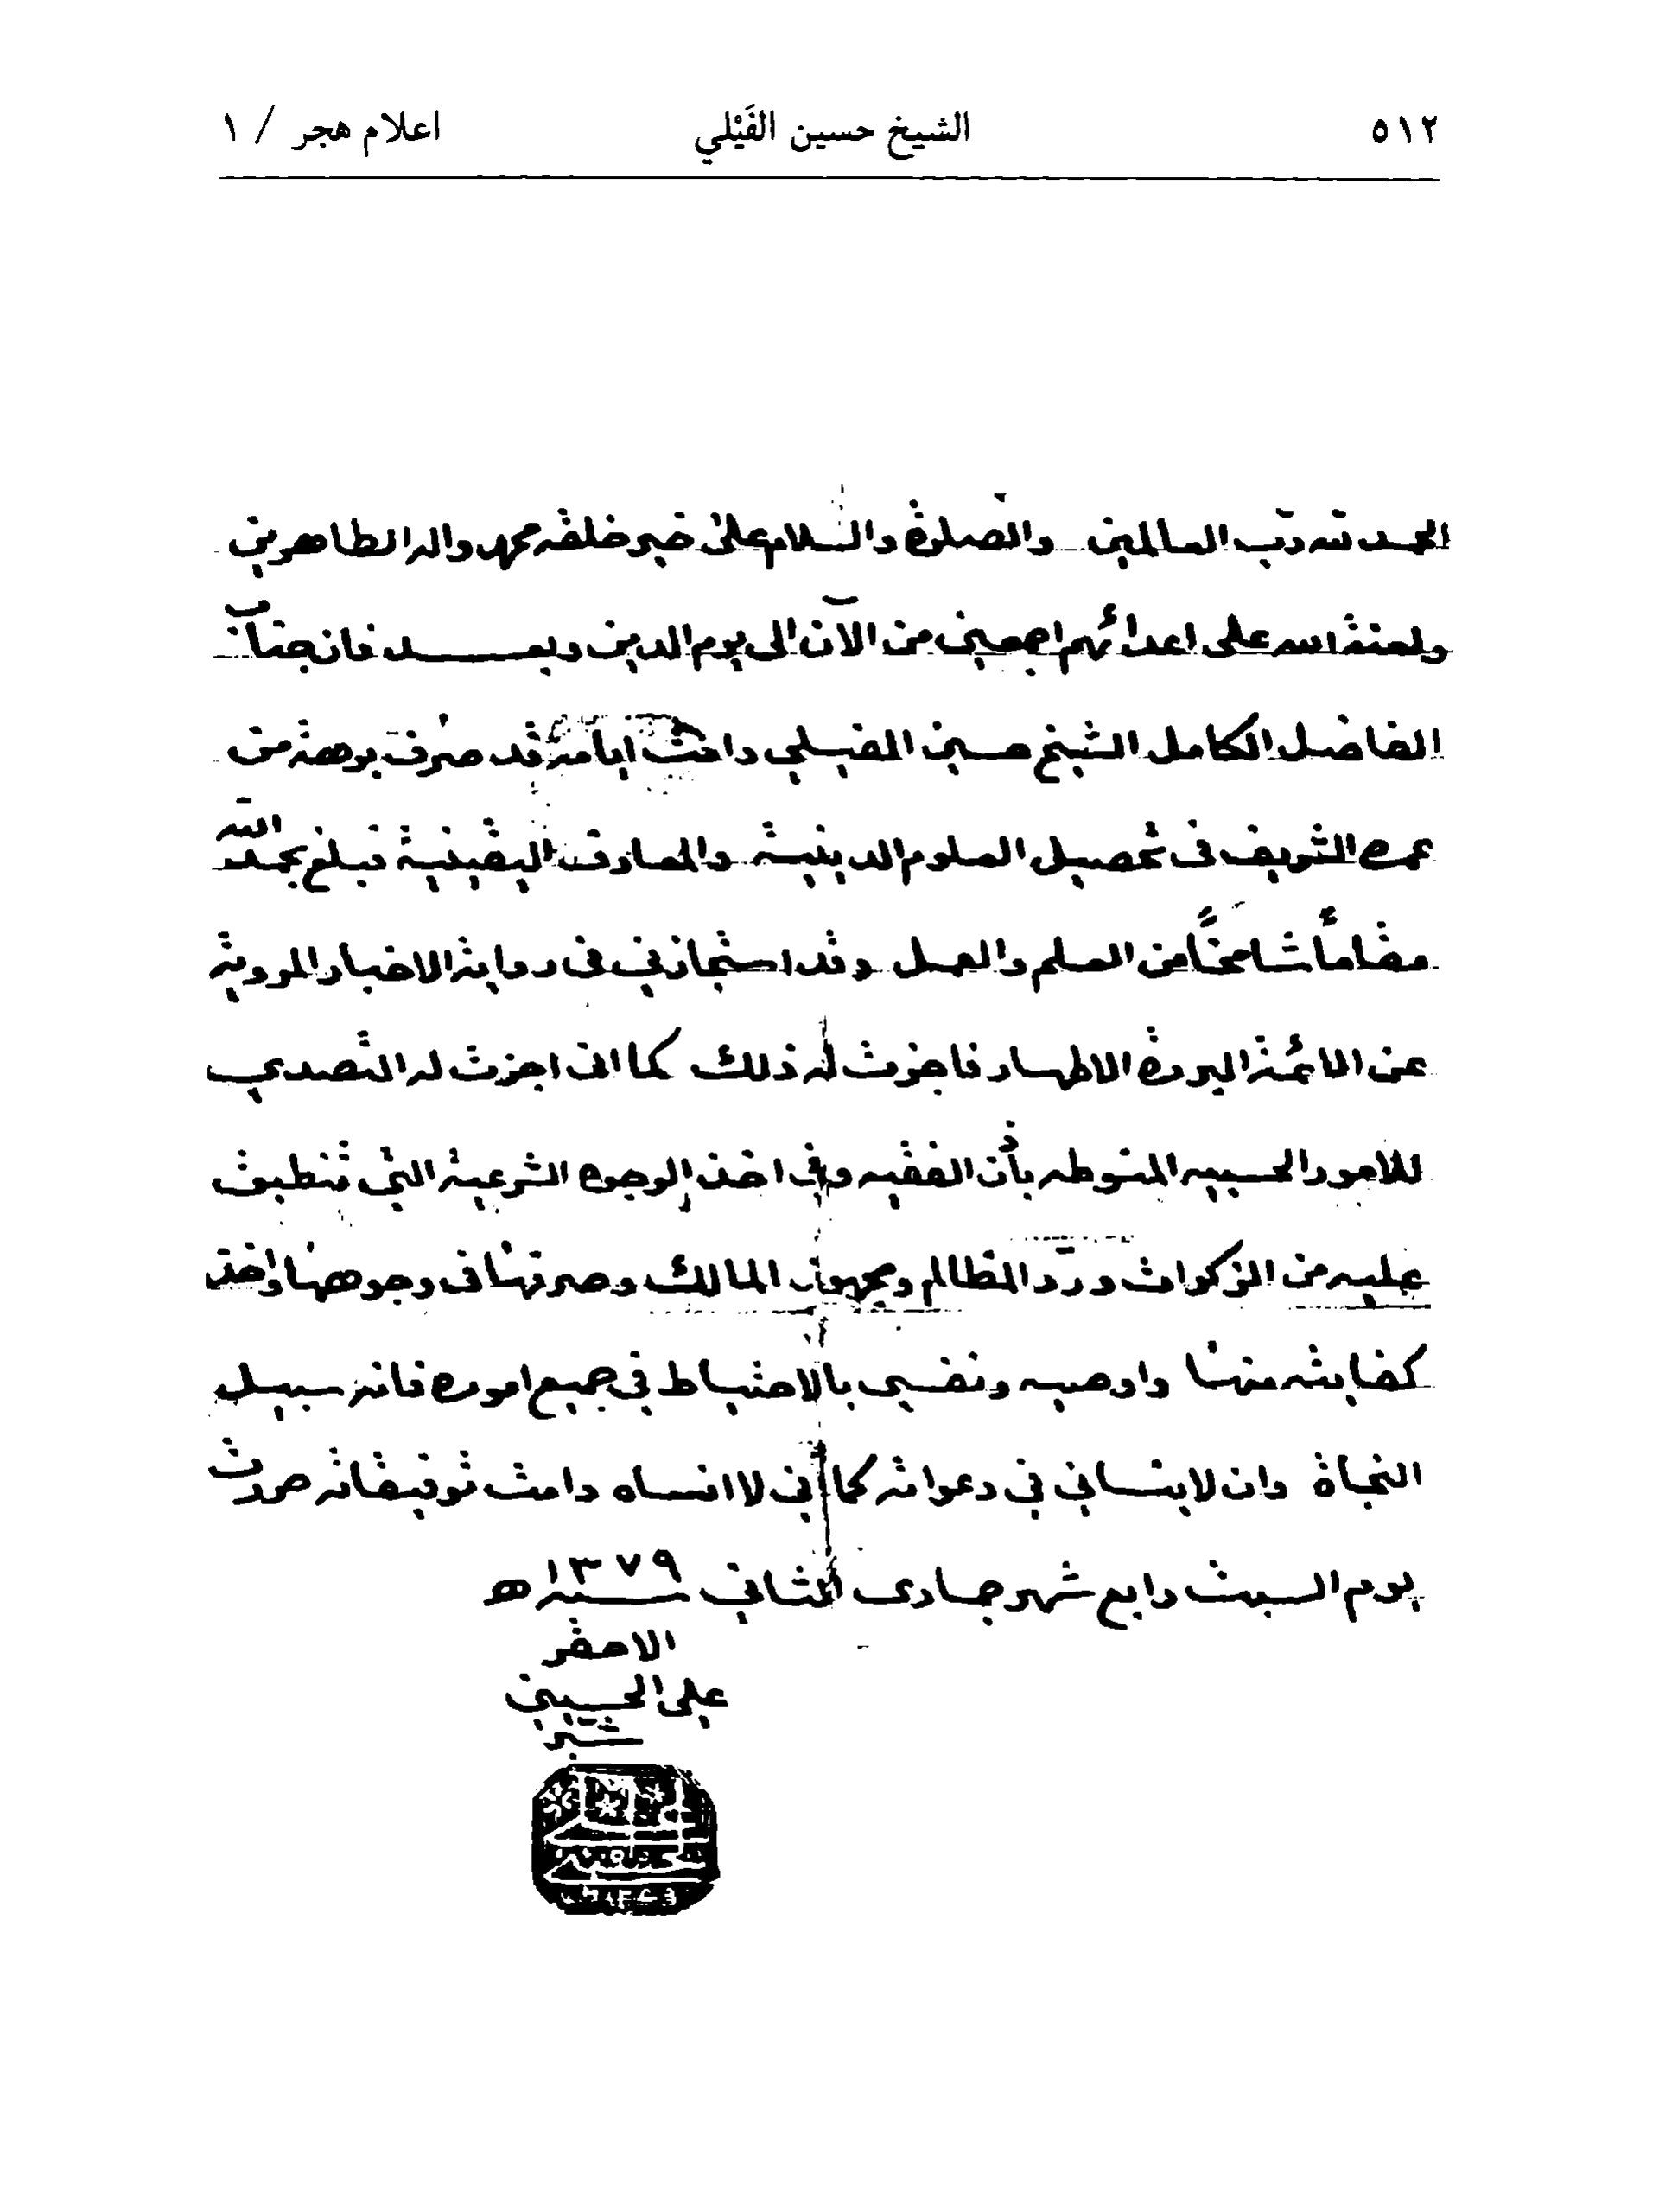 ٥١٢ الشيخ حسين الفَيْلي اعلام هجر / ١
الحمد لله ربّ العالمين والصلوة والسلام على خير خلقه محمد واله الطاهرين
ولعنة الله على اعدائهم اجمعين من الآن الى يوم الدين وبعد فان جناب
الفاضل الكامل الشيخ حسين الفيلي دامت ايامه قد صرف برهة من
عمره الشريف في تحصيل العلوم الدينية والمعارف اليقينية فبلغ بحمد الله
مقاماً شامخاً من العلم والعمل وقد استجازني في رواية الاخبار المروية
عن الائمة البررة الاطهار فاجزت له ذلك كما اني اجزت له التصدي
للامور الحسبيه المنوطه بأذن الفقيه وفي اخذ الوجوه الشرعية التي تنطبق
عليه من الزكوات وردّ المظالم ومجهول المالك وصرفها في وجوهها واخذ
كفايته منها واوصيه ونفسي بالاحتياط في جميع اموره فانه سبيل
النجاة وان لا ينساني في دعواته كما اني لا انساه دامت توفيقاته حررت
يوم السبت رابع شهر جمادى الثاني سنة ١٣٧٩ ه
الاحقر
علي الحسيني
شبّر